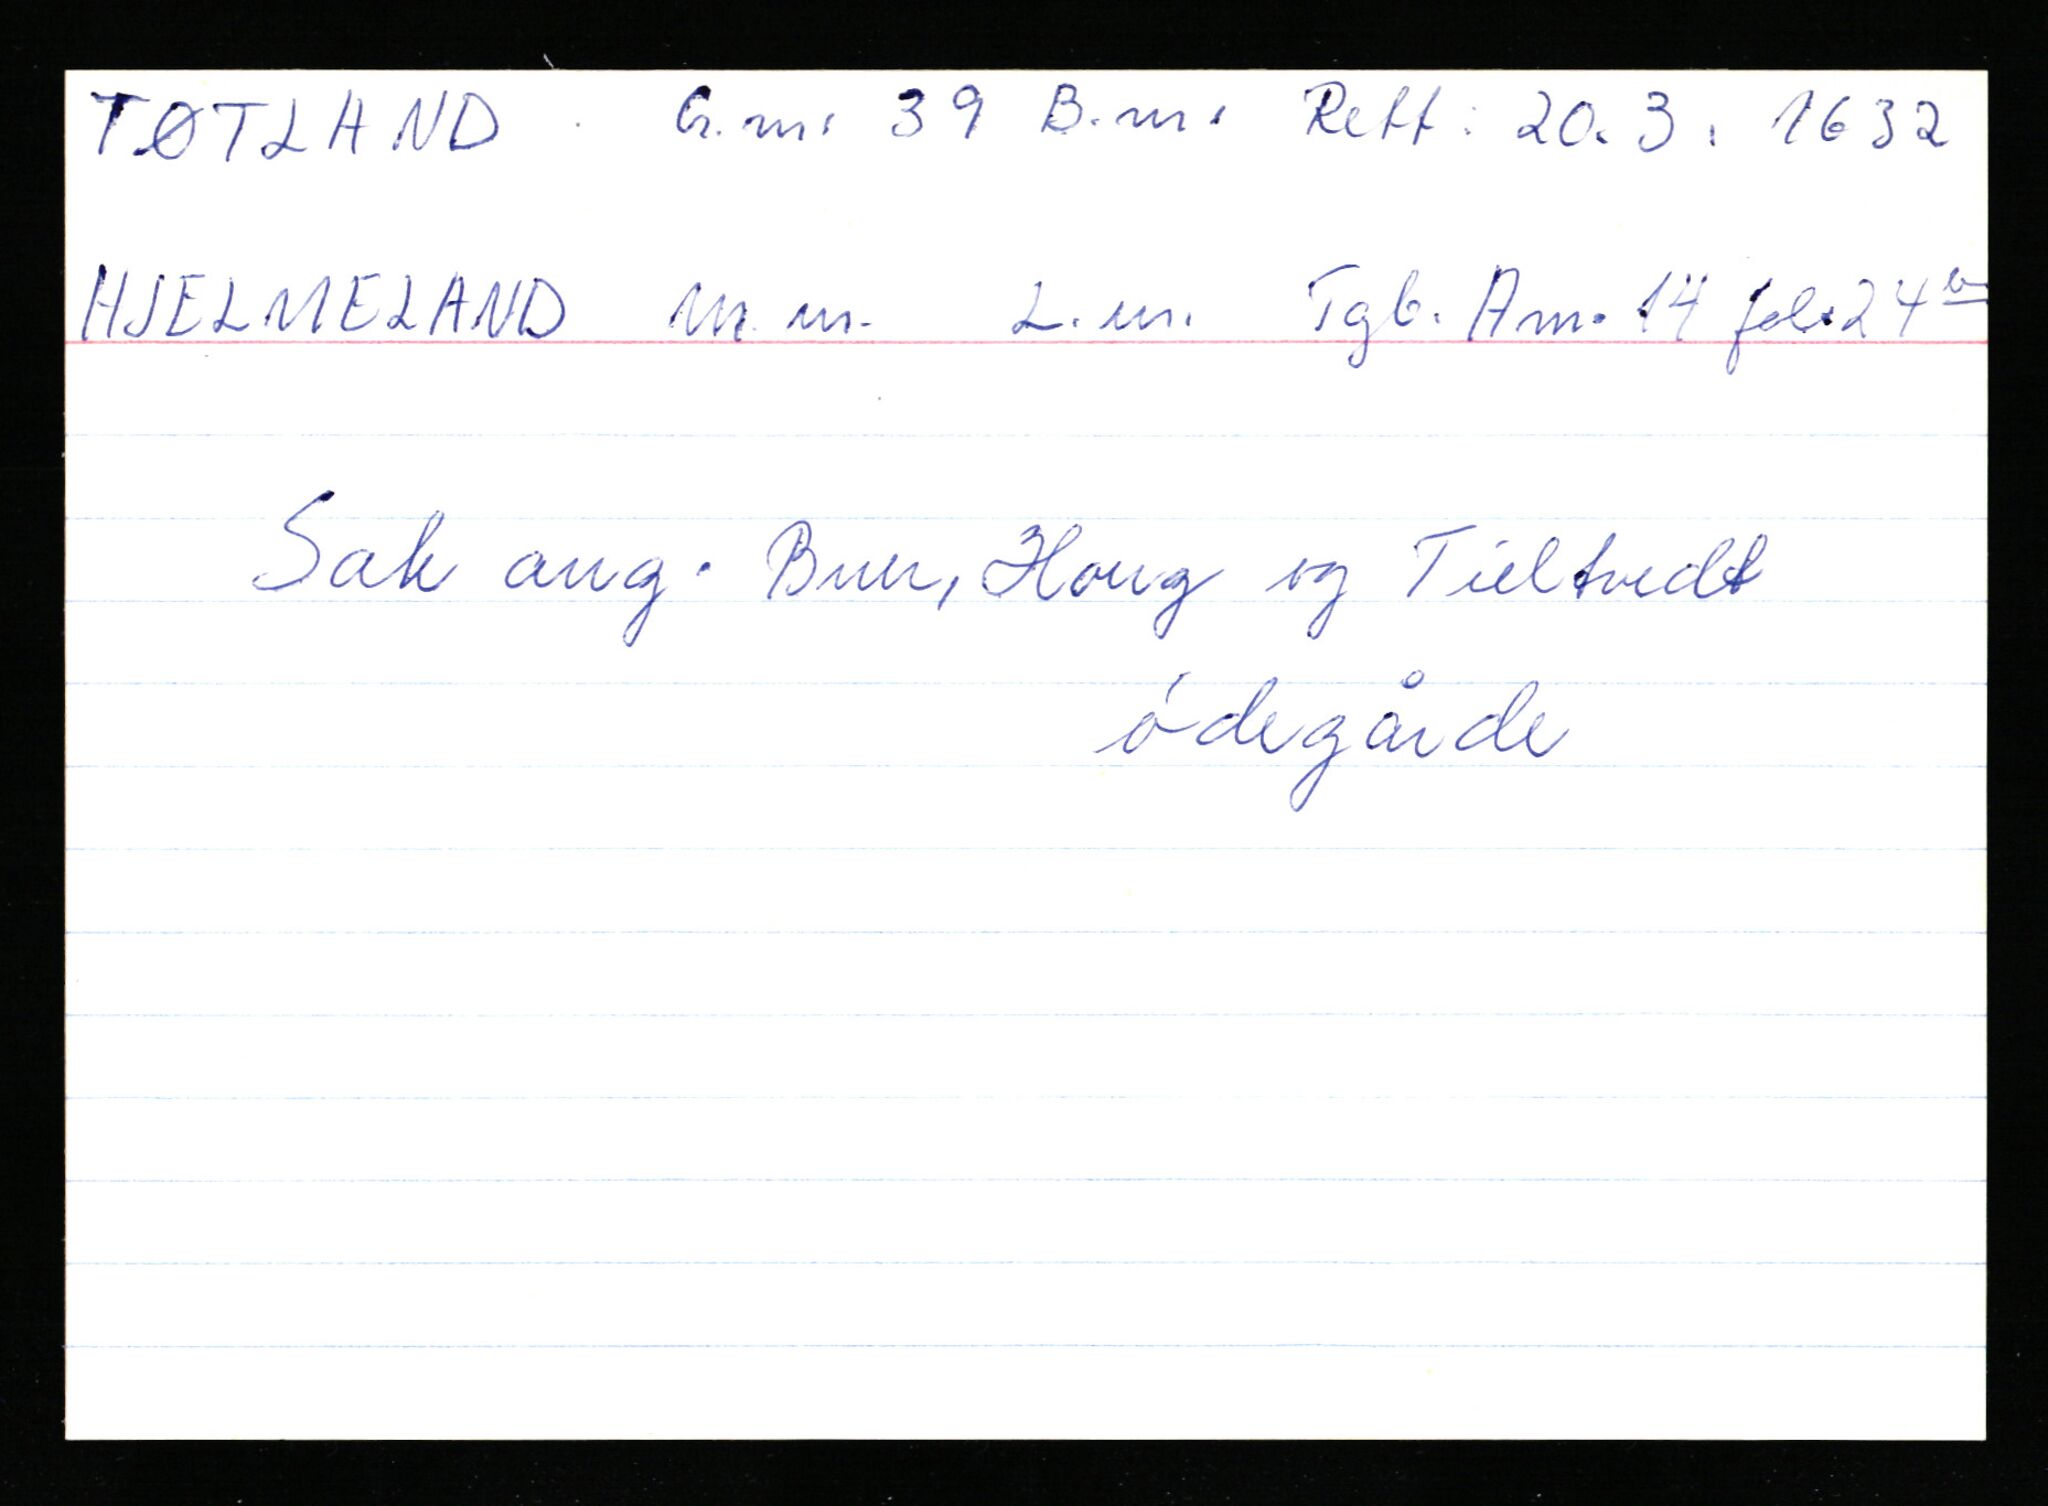 TØTLAND G.nr. 39 B.nr. Rett: 20.3. 1632
HJELMELAND M.nr. L.nr. Tgb. Anr. 14 fol. 24
Sak ang. Buer, Houg og Tieltvedt
ødegårde